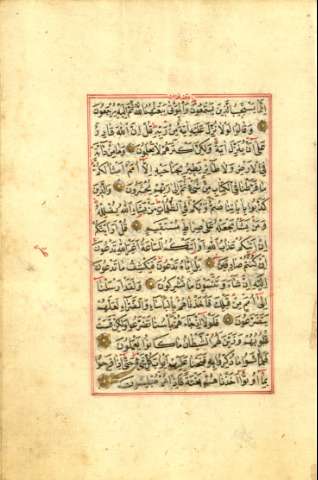 إنما يستجيب الذين يسمعون والموتى يبعثهم الله ثم إليه يرجعون
وقالوا لولا نزل عليه آية من ربه قل إن الله قادر
على أن ينزل آية ولكن أكثرهم لا يعلمون وما من دابة
في الأرض ولا طائر يطير بجناحيه إلا أمم أمثالكم
ما فرطنا في الكتاب من شيء ثم إلى ربهم يحشرون والذين
كذبوا بآياتنا صم وبكم في الظلمات من يشإ الله يضلله
ومن يشأ يجعله على صراط مستقيم قل أرأيتكم
إن أتاكم عذاب الله أو أتتكم الساعة أغير الله تدعون
إن كنتم صادقين بل إياه تدعون فيكشف ما تدعون
إليه إن شاء وتنسون ما تشركون ولقد أرسلنا
إلى أمم من قبلك فأخذناهم بالبأساء والضراء لعلهم
يتضرعون فلولا إذ جاءهم بأسنا تضرعوا ولكن قست
قلوبهم وزين لهم الشيطان ما كانوا يعملون
فلما نسوا ما ذكروا به فتحنا عليهم أبواب كل شيء حتى إذا فرحوا
بما أوتوا أخذناهم بغتة فإذا هم مبلسون